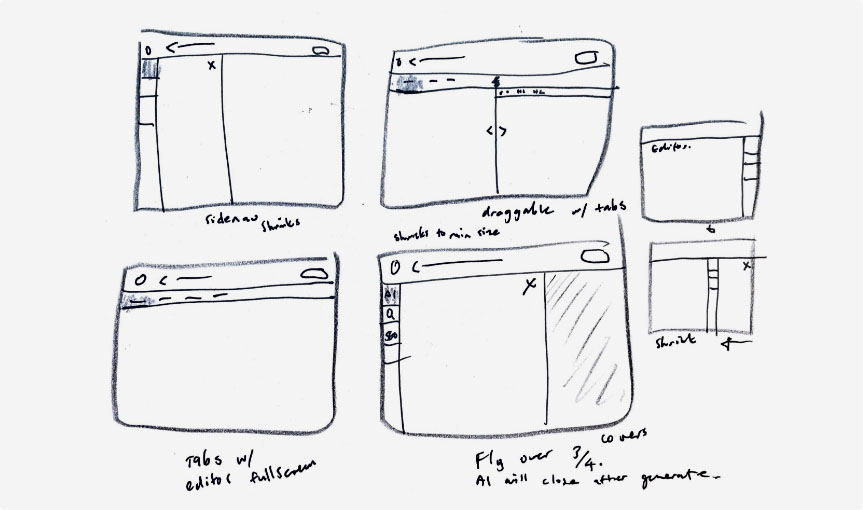 x
sidenav
shrinks
< >
draggable w/ tabs
shrinks to min size
Editor.
x
shrink
Tabs w/
editor fullscreen
AI
Q
SEO
x
covers
Fly over 3/4.
AI will close after generate.